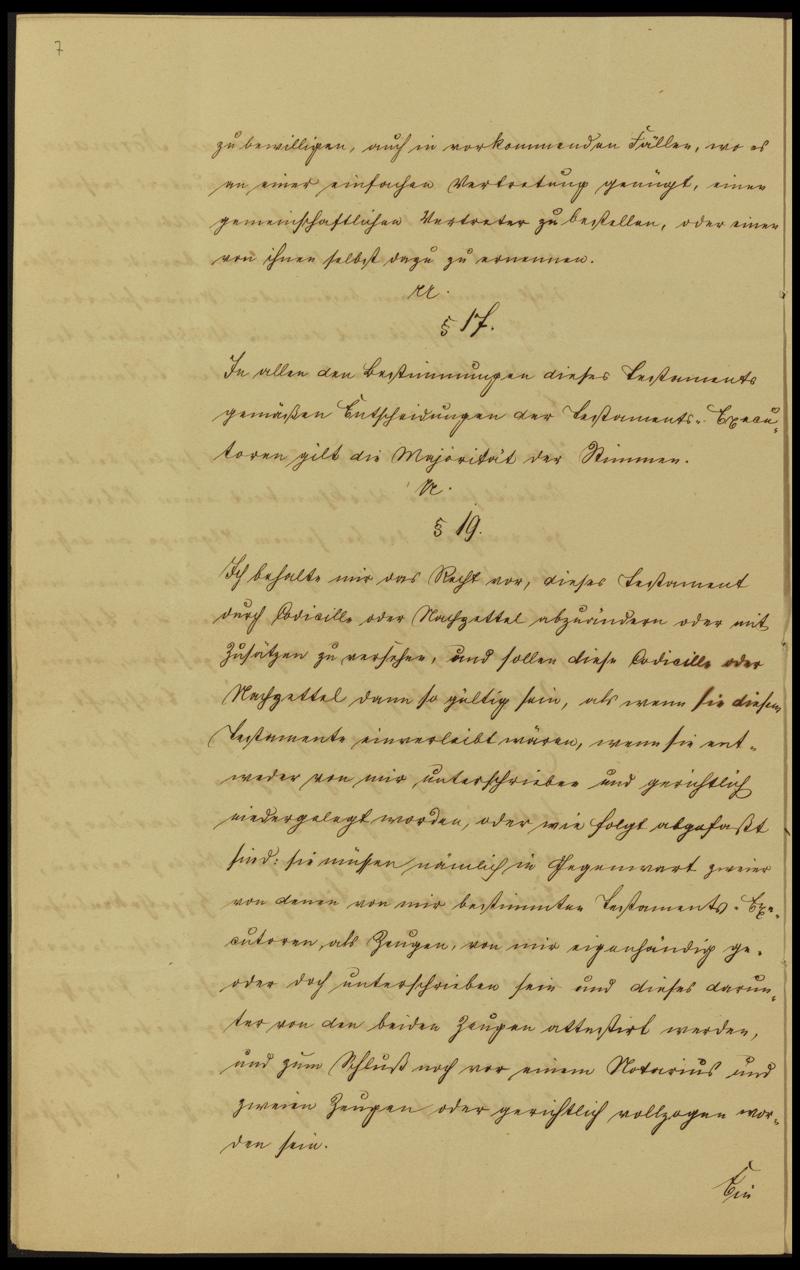 7
zu bewilligen, auch in vorkommenden Fällen, wo es
an einer einfachen Vertretung genügt, einen
gemeinschaftlichen Vertreter zu bestellen, oder einen
von ihnen selbst dazu zu ernennen.
§ 17.
In allen den Bestimmungen dieses Testaments
gemäßen Entscheidungen der Testaments-Execu-
toren gilt die Majorität der Stimmen.
§ 19.
Ich behalte mir das Recht vor, dieses Testament
durch Codicille oder Nachzettel abzuändern oder mit
Zusätzen zu versehen, und sollen diese Codicille oder
Nachzettel dann so gültig sein, als wenn sie diesem
Testamente einverleibt wären, wenn sie ent-
weder von mir unterschrieben und gerichtlich
niedergelegt worden, oder wie folgt abgefaßt
sind: sie müssen nämlich in Gegenwart zweier
von denen von mir bestimmten Testaments-Exe-
cutoren, als Zeugen, von mir eigenhändig ge-
oder doch unterschrieben sein und dieses darun-
ter von den beiden Zeugen attestirt werden,
und zum Schluß noch vor einem Notarius und
zweien Zeugen oder gerichtlich vollzogen wor-
den sein.
Ein